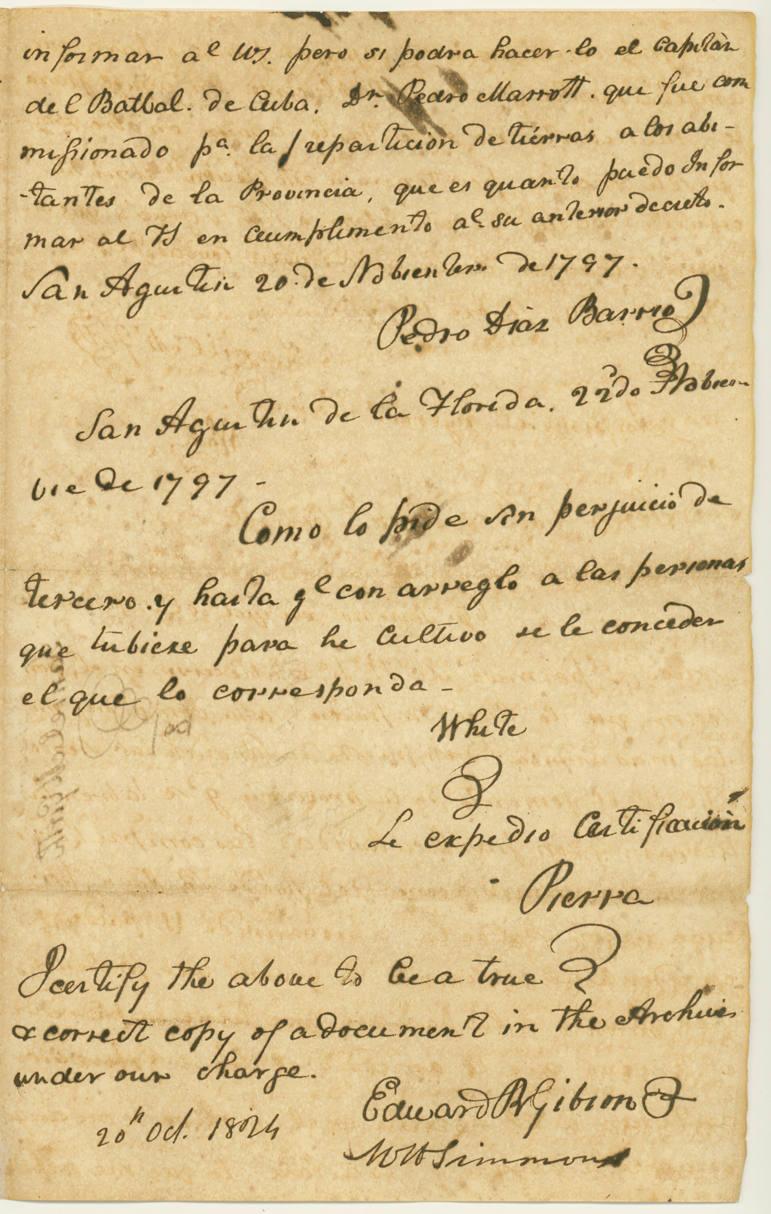 informar a US. pero si podra hacer-lo el Capitàn
del Batbal. de Cuba, Dn. Pedro Marrott. que fue com
missionado pa. la repartición de tiérras a los abi-
-tantes de la Provincia, que es quanto puedo Infor
mar al VS en cumplimento al su anterior decreto.
San Agustin 20 de Nobiembre de 1797.
Pedro Diaz Barrio
San Agustin de la Florida. 22 do Nobiem-
bre de 1797-
Como lo pide sin perjuicio de
tercero. y hasta ql con arreglo a las personas
que tubiese para he cultivo se le conceder
el que lo corresponda-
White
Se expedio Certificación
Pierra
I certify the above to be a true
& correct copy of a document in the Archives
under our charge.
Edward R Gibson
20th Oct. 1824
WH Simmons